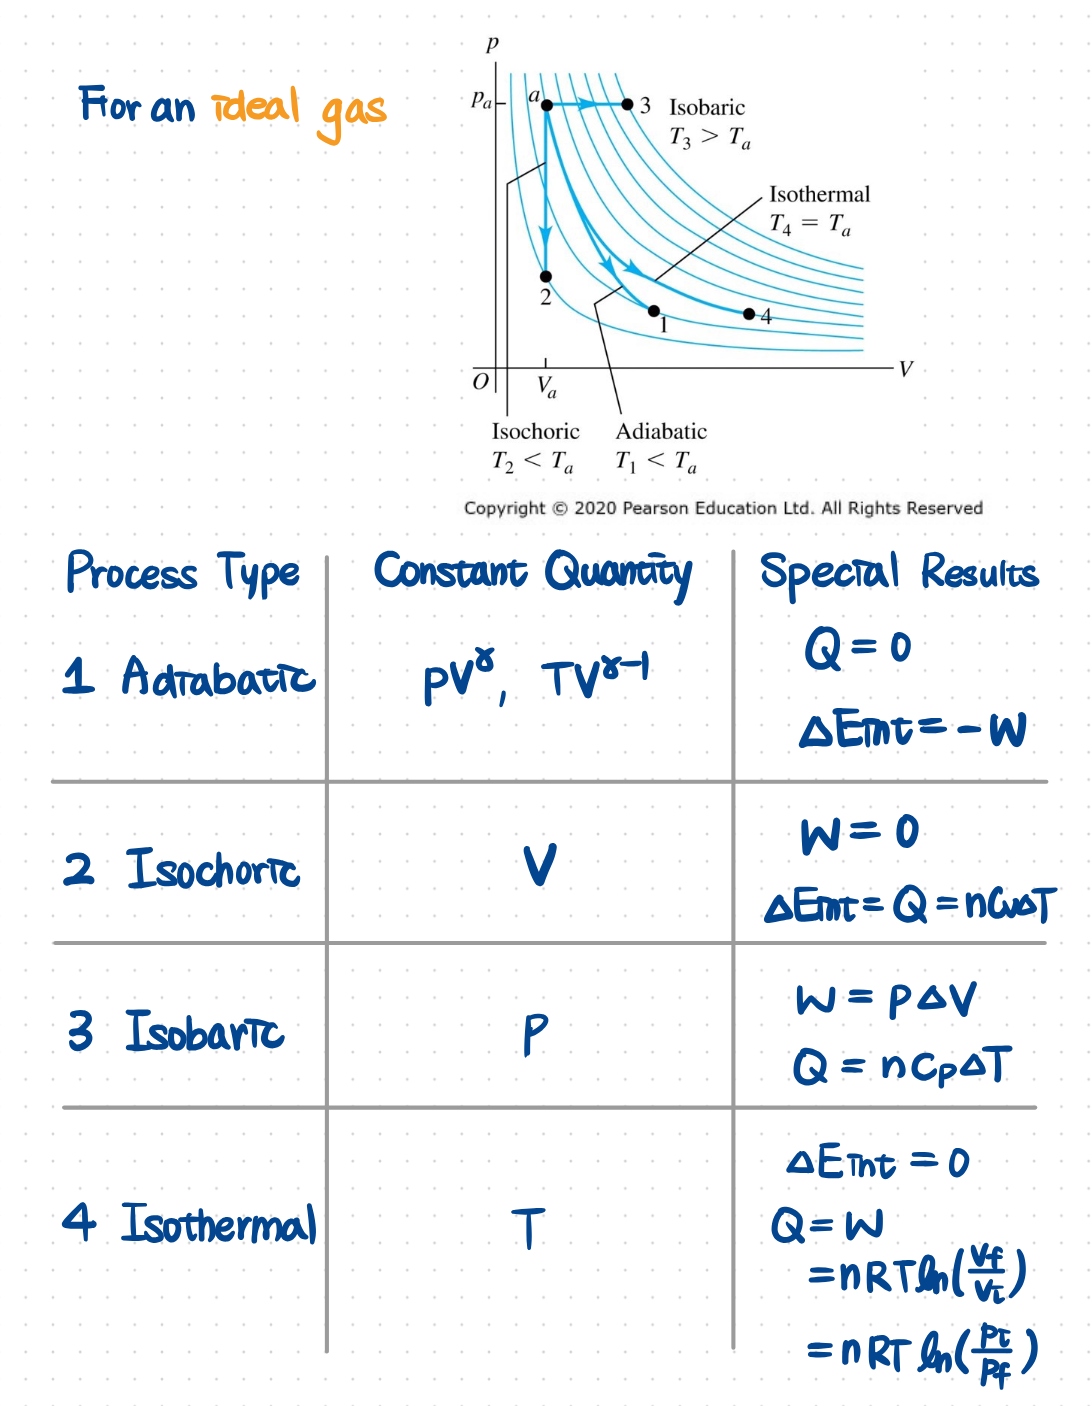 For an ideal gas
p
pₐ
a
3
Isobaric
T₃ > Tₐ
Isothermal
T₄ = Tₐ
2
1
4
O
Vₐ
V
Isochoric
T₂ < Tₐ
Adiabatic
T₁ < Tₐ
Copyright © 2020 Pearson Education Ltd. All Rights Reserved
Process Type Constant Quantity Special Results
1 Adiabatic PV^γ, TV^γ-1
Q = 0
ΔEint = -W
2 Isochoric V
W = 0
ΔEint = Q = nCvΔT
3 Isobaric P
W = PΔV
Q = nCpΔT
4 Isothermal T
ΔEint = 0
Q = W
= nRT ln(Vf/Vi)
= nRT ln(Pi/Pf)